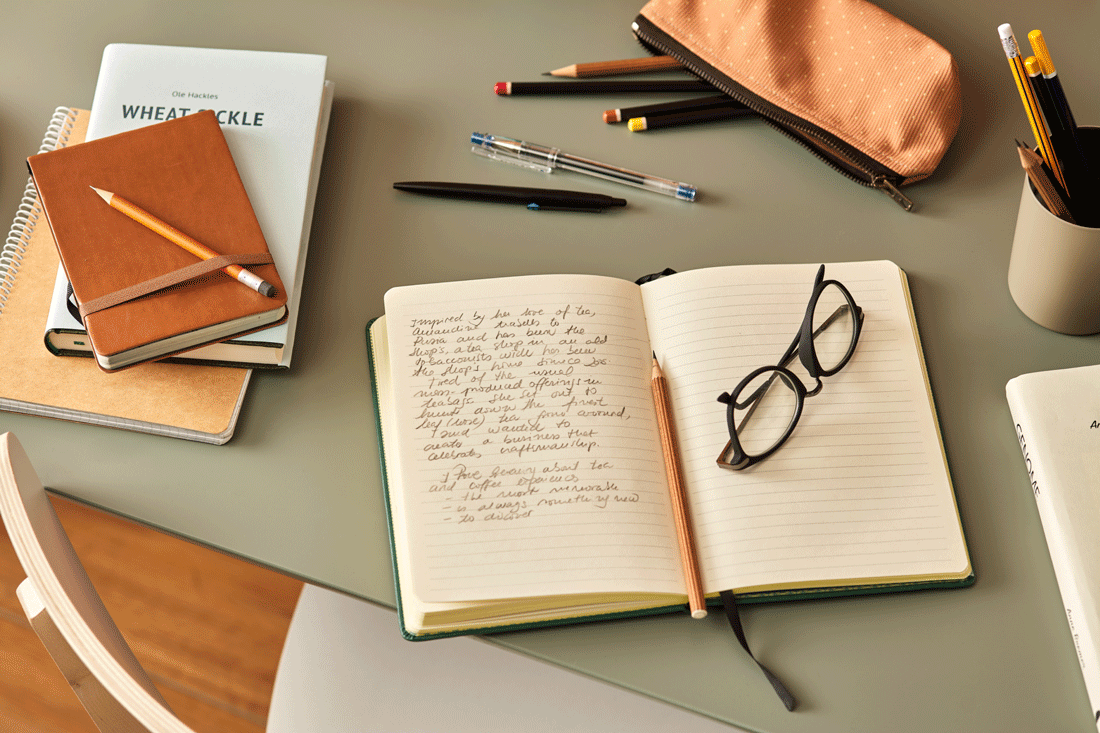 Ole Hackles
WHEAT
Inspired by her love of tea,
Amandine travels to
Russia and has been the
shops, a tea shop in an old
tobacconists with has been
the shop's home since
Tired of the usual
mass-produced offerings in
teabags she set out to
hunt down the finest
leaf (loose) tea from around,
I and wanted to
create a business that
celebrates craftsmanship.
I love hearing about tea
and coffee experiences
- the most memorable
- is always something new
- to discover
GENOME